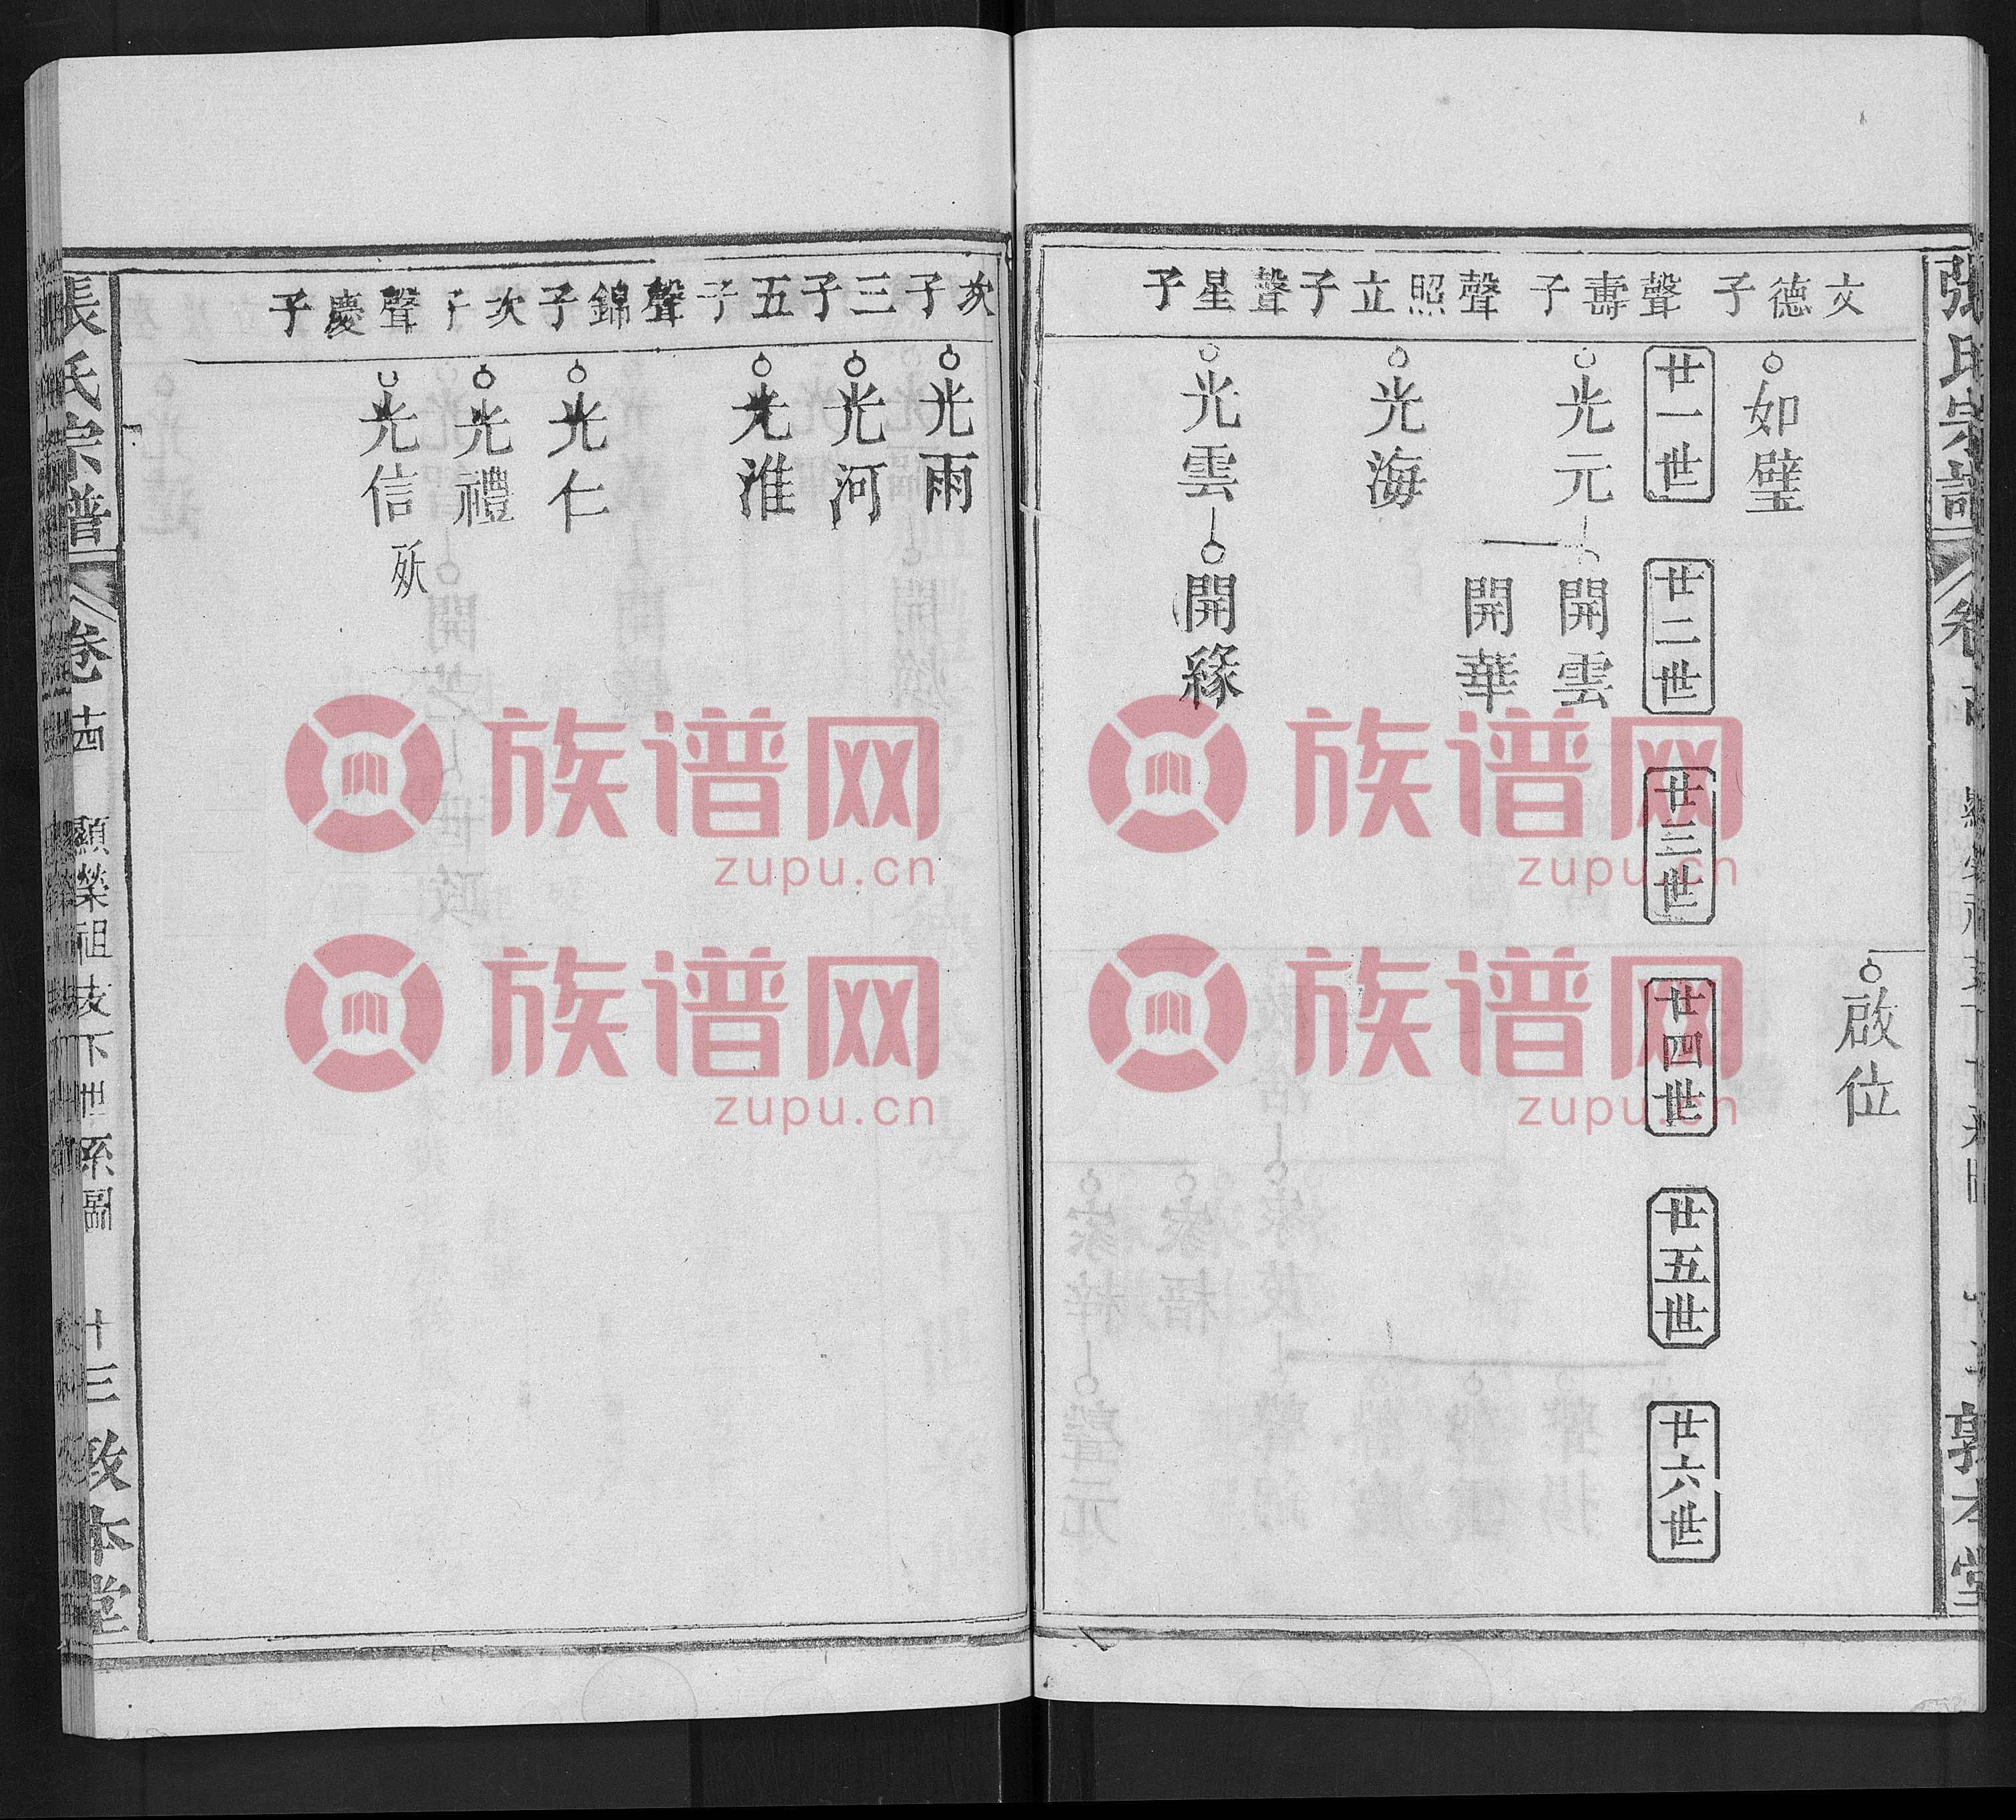 張氏宗譜
敦本堂
啟位
文德子
如璧
廿一世
廿二世
廿三世
廿四世
廿五世
廿六世
聲壽子
光元
開雲
開華
聲照立子
光海
聲星子
光雲
開緣
次子
光雨
三子
光河
五子
光淮
聲錦子
光仁
次子
光禮
聲慶子
光信
殀
張氏宗譜
卷十四
顯榮祖支下世系圖
十三
敦本堂
族谱网
zupu.cn
族谱网
zupu.cn
族谱网
zupu.cn
族谱网
zupu.cn